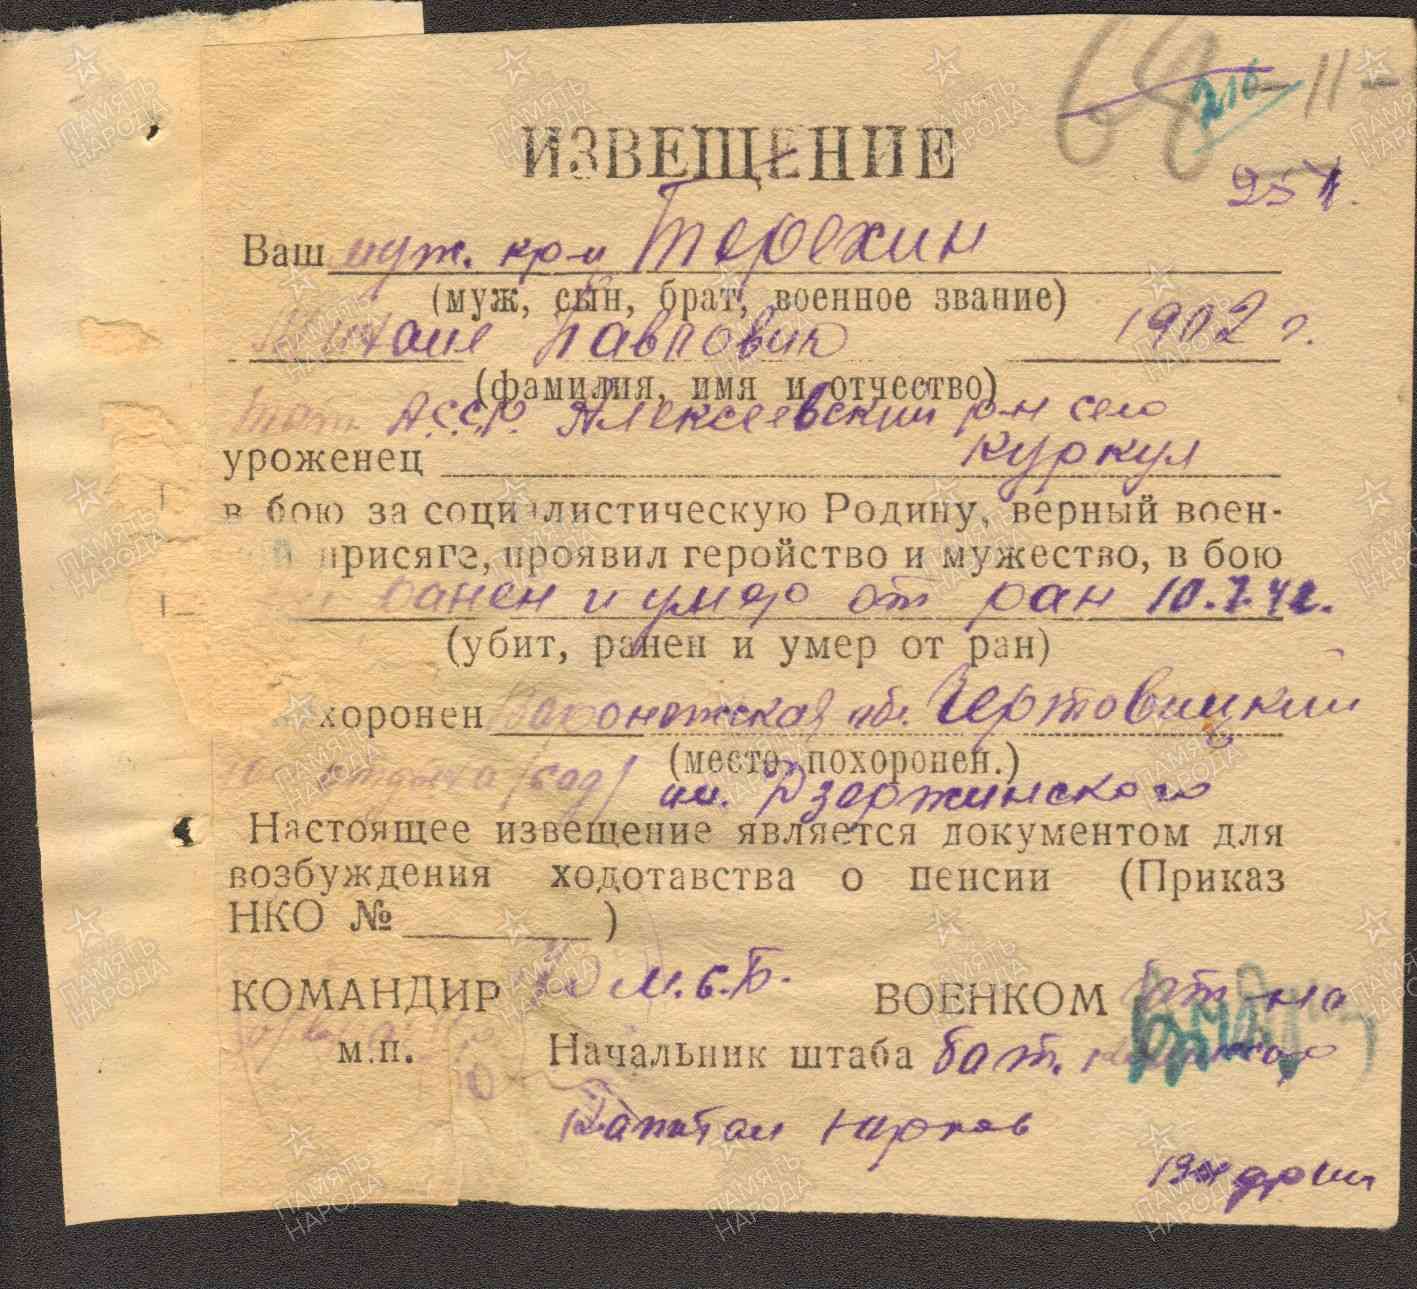 68-11-
216
251.
ИЗВЕЩЕНИЕ
Ваш муж. кр-ц Терехин
(муж, сын, брат, военное звание)
Михаил Павлович 1902 г.
(фамилия, имя и отчество)
Тат. А.С.С.Р. Алексеевский р-н село
уроженец Куркул
в бою за социалистическую Родину, верный воен-
присяге, проявил геройство и мужество, в бою
ранен и умер от ран 10.7.42.
(убит, ранен и умер от ран)
хоронен Воронежская обл. Чертовицкий
(место похоронен.)
(сад) им. Дзержинского
Настоящее извещение является документом для
возбуждения ходотавства о пенсии (Приказ
НКО № )
КОМАНДИР М.С.Б. ВОЕНКОМ бат-на
м.п. Начальник штаба бат.
Капитан
ПАМЯТЬ НАРОДА